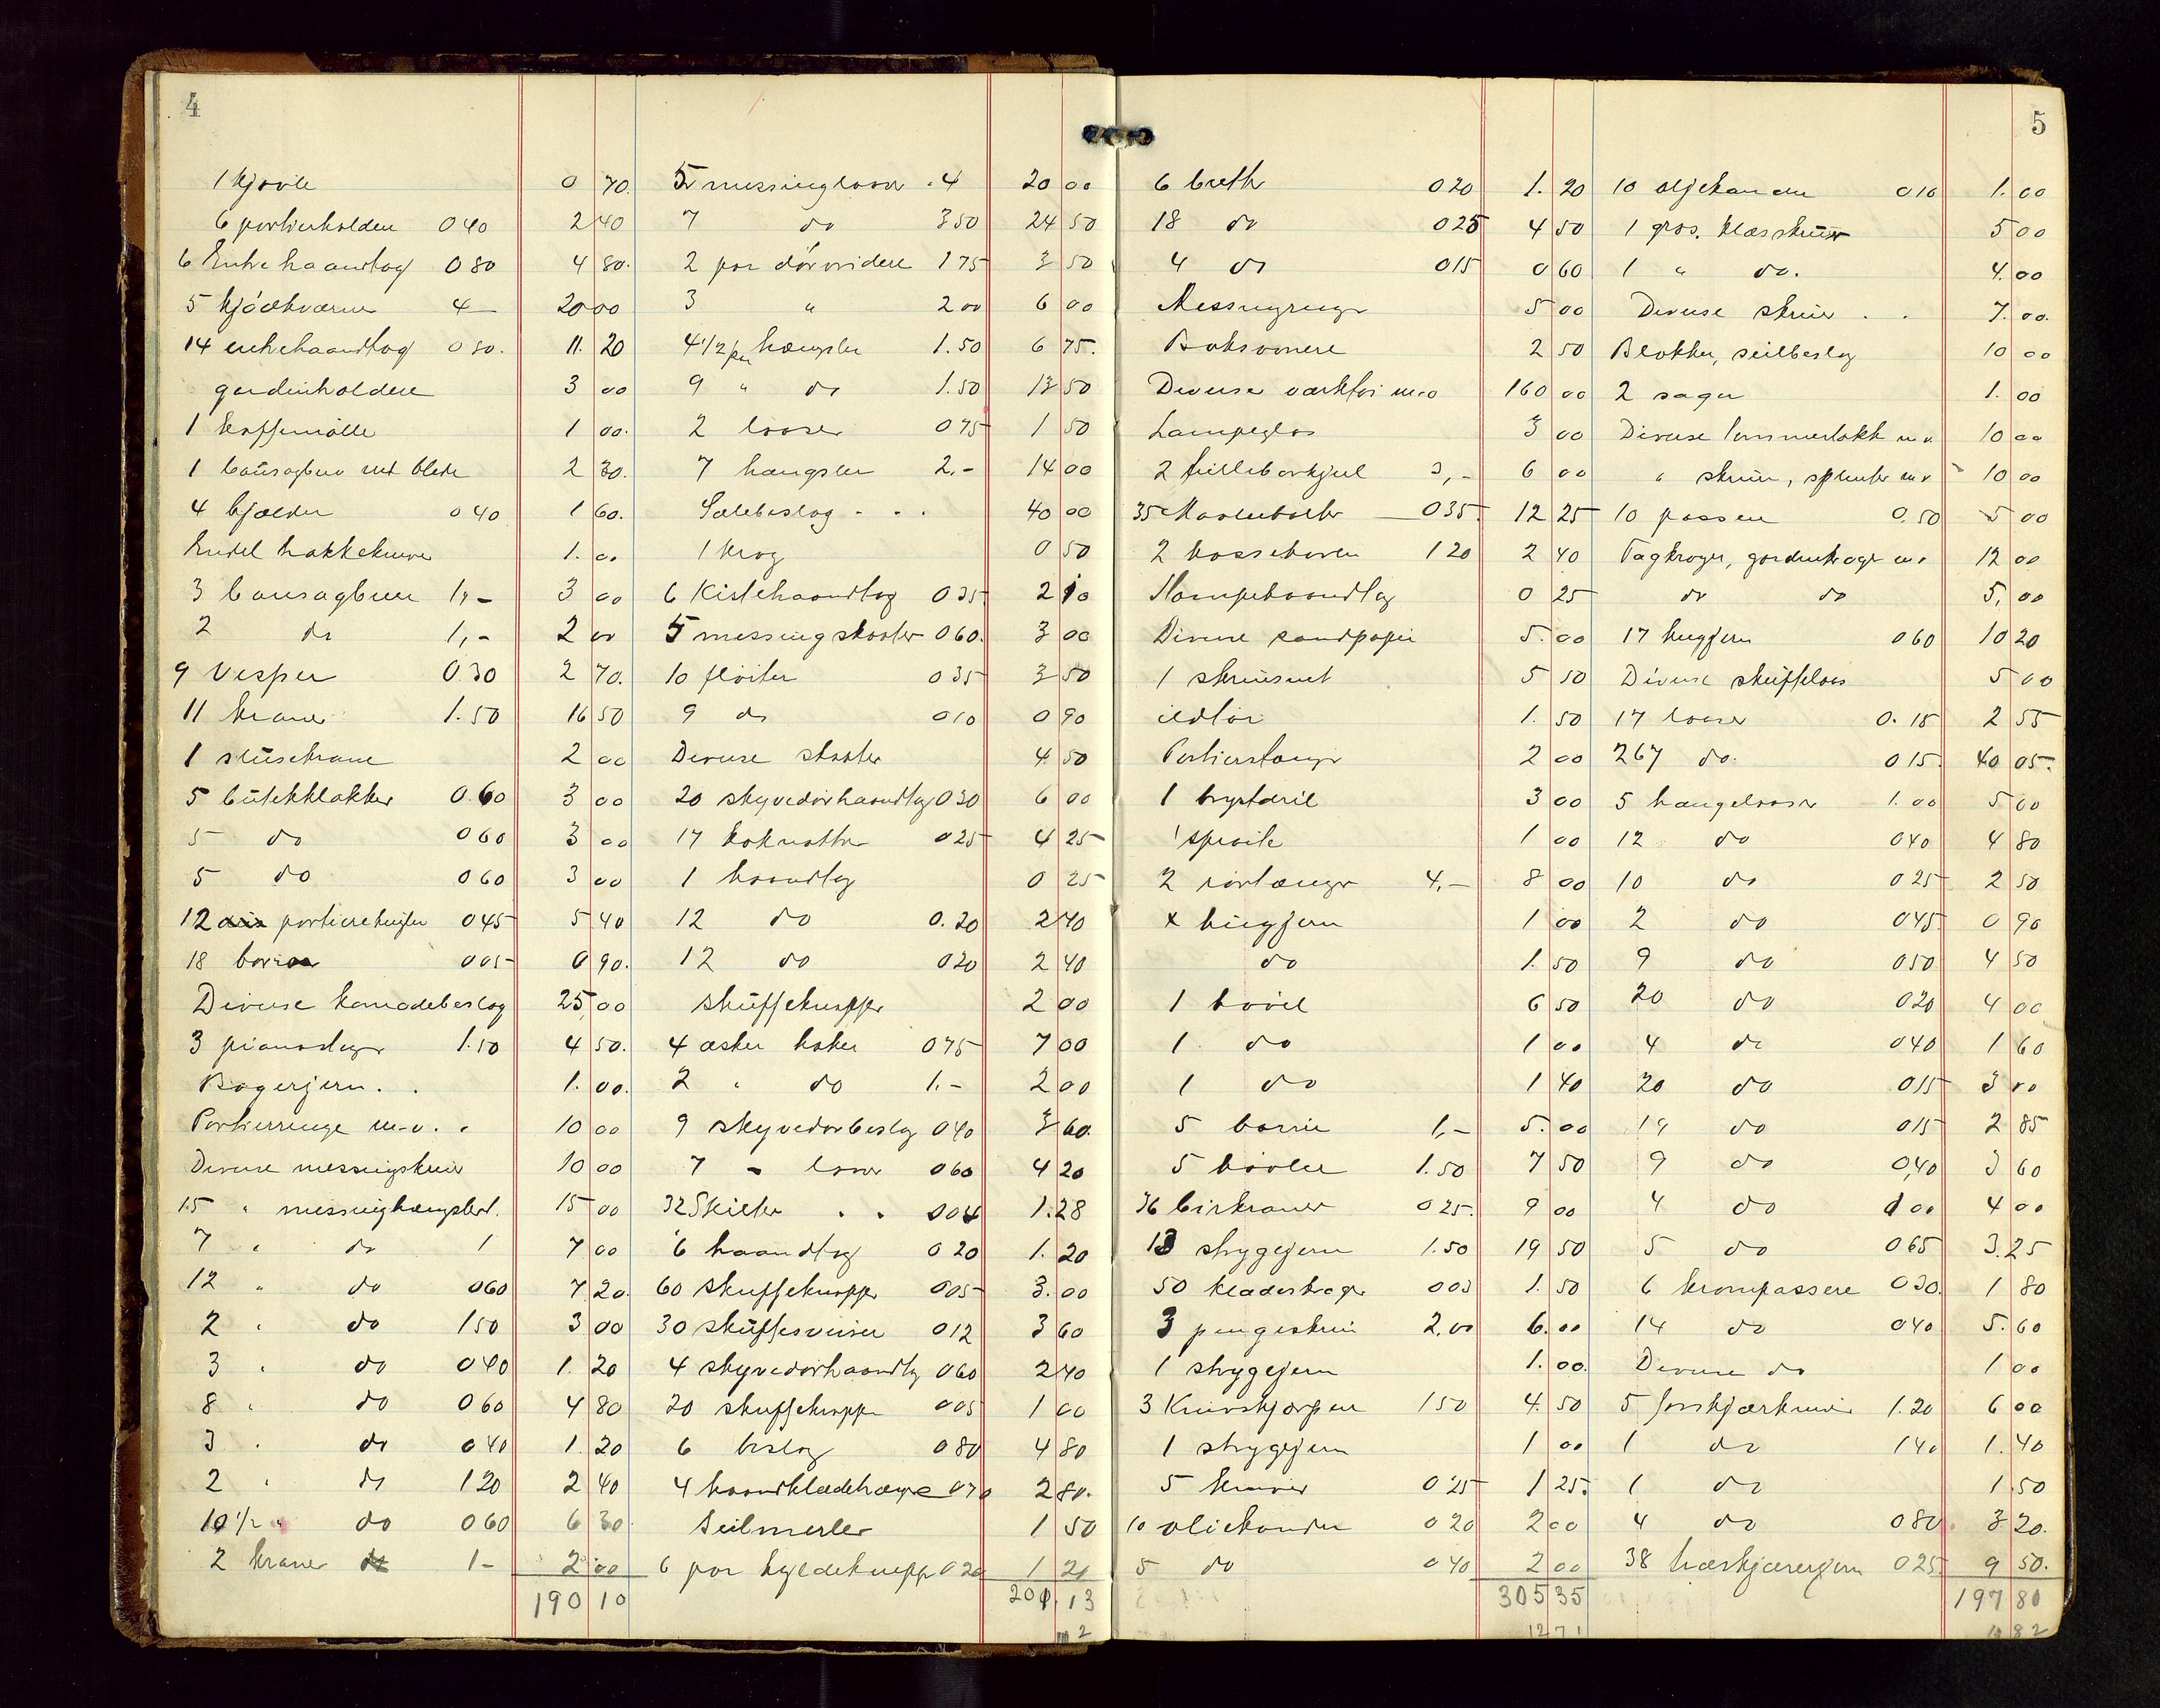 4
1 kjevle 0 70.
6 portierholdere 0 40 2 40
6 Entre haandtag 0 80 4 80.
5 kjødkværne 4 — 20 00
14 entrehaandtag 0 80. 11. 20
gardinholdere 3 00
1 kaffemølle 1 00.
1 bausagbue 2 30.
4 bjælder 0 40 1 60.
Endel hakkekniver 1. 00
3 bausagbuer 1,- 3 00
2 do 1,- 2 00
9 Vesper 0.30 2 70.
11 kraner 1.50 16 50
1 slusekrane 2 00
5 butikklokker 0 60 3 00
5 do 0 60 3 00
5 do 0 60 3 00
12 portiere 0 45 5 40
18 0 05 0 90.
Diverse komodebeslag 25,00
3 1.50 4 50.
Bøgerjern . . 1. 00.
Portierringe m.v. . 10 00
Diverse messingskruer 10 00
15 " messinghængsler 1. 15 00
7 " do 1 7 00
12 " do 0 60 7 20.
2 " do 1 50 3 00
3 " do 0 40 1. 20
8 " do 0 60 4 80
3 " do 0 40 1. 20
2 " do 1 20 2 40
10 1/2 " do 0 60 6 30.
2 kraner 1 - 2 00
190 10
5 messinglaaser . 4 20 00
7 do 3 50 24 50
2 par dørvridere 1 75 3 50
3 " 2 00 6 00
4 1/2 par hængsler 1.50 6 75.
9 " do 1.50 13 50
2 laaser 0 75 1 50
7 hængsler 2,- 14 00
Sælebeslag . . . 40 00
1 krog 0 50
6 Kistehaandtag 0 35 2 10
5 messing skaater 0 60. 3 00
10 fløiter 0 35 3 50
9 do 0 10 0 90
Diverse skaater 4 50
20 skyvedørhaandtag 0 30 6 00
17 0 25 4 25
1 haandtag 0 25
12 do 0.20 2 40
12 do 0 20 2 40
skuffeknapper 2 00
4 æsker haker 0 75 7 00
2 " do 1.- 2 00
9 skyvedørbeslag 0 40 3 60.
7 - laaser 0 60 4 20
32 Skilter . . 0 04 1.28
6 haandtag 0 20 1. 20
60 skuffeknapper 0 05 3. 00
30 0 12 3 60
4 skyvedørhaandtag 0 60 2 40
20 skuffeknapper 0 05 1 00
6 beslag 0 80 4 80
4 haandklædehængere 0 70 2 80.
Seilmerler 1 50
6 par hyldeknegter 0 20 1 20
201.13
5
6 0 20 1. 20
18 do 0 25 4 50
4 do 0 15 0 60
Messingringe 5 00
2 50
Diverse værktøi m.v 160 00
Lampeglas 3 00
2 3,- 6 00
35 0 35. 12 25
2 1 20 2 40
Lampehaandtag 0 25
Diverse sandpapir 5. 00
1 5 50
ildtøi 1. 50
Portierstænger 2 00
1 brystdril 3 00
1 sprøite 1 00
2 rørtænger 4,- 8 00
x huggjern 1 00
do 1. 50
1 høvel 6 50
1 do 1 00
1 do 1 40
5 1,- 5. 00
5 høvler 1.50 7 50
36 0 25. 9 00
13 strygejern 1.50 19 50
50 0 03 1. 50
3 pengeskrin 2,00 6. 00
1 strygejern 1. 00.
3 Knivskjærpere 1 50 4. 50
1 strygejern 1 00
5 kniver 0 25 1 25.
10 oliekander 0 20 2 00
5 do 0 40 2 00
305 35
12 71
10 oljekander 0 10 1. 00
1 gros. 5 00
1 " do. 4. 00
Diverse skruer . . 7. 00.
Blokker, seilbeslag 10 00
2 sager 1. 00
Diverse m.v. 10 00
" skruer, splinter m.v 10 00
10 passere 0.50 5 00
Tagkroger, m.v 12 00
do do 5,00
17 hugjern 0 60 10 20
Diverse skuffelaas 5 00
17 laaser 0.15 2 55
267 do. 0 15. 40 05.
5 hængelaaser 1.00 5 00
12 do 0 40 4 80
10 do 0 25 2 50
2 do 0 45. 0 90
9 do 0 50. 4 50
20 do 0 20 4 00
4 do 0 40 1 60
20 do 0 15 3 00
19 do 0 15 2 85
9 do 0,40 3 60
4 do 1 00 4 00
5 do 0 65 3.25
6 krumpassere 0 30. 1 80
14 do 0 40 5. 60
Diverse do 1 00
5 forskjærkniver 1.20 6 00
1 do 1 40 1. 40
1 do 1.50
4 do 0 80. 3 20.
38 0 25. 9 50.
197 80